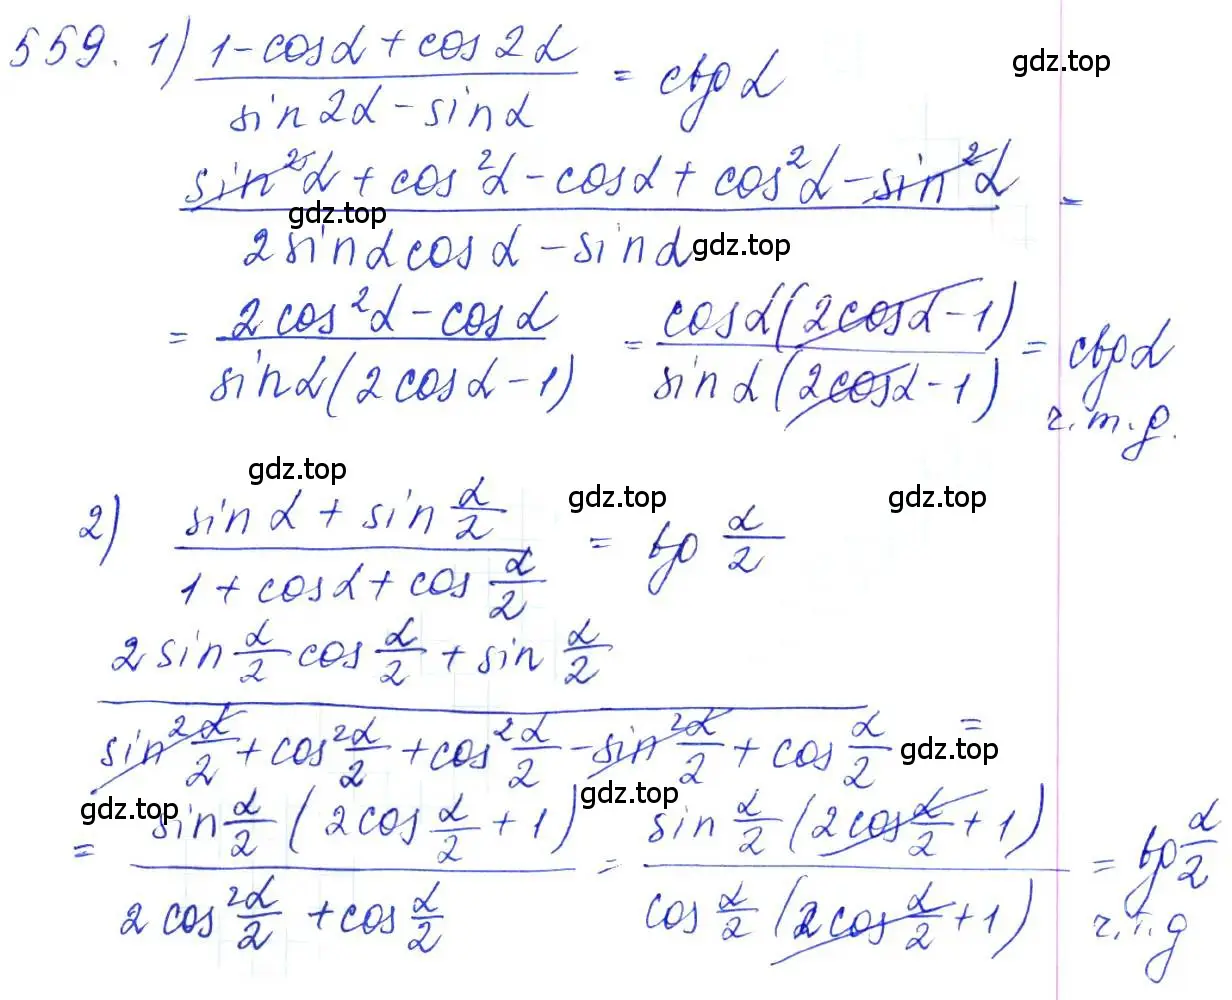 559. 1) (1 - cos α + cos 2α) / (sin 2α - sin α) = ctg α
gdz.top
(sin²α + cos²α - cos α + cos²α - sin²α) / (2 sin α cos α - sin α) =
gdz.top
gdz.top
= (2 cos²α - cos α) / (sin α (2 cos α - 1)) = (cos α (2 cos α - 1)) / (sin α (2 cos α - 1)) = ctg α
ч. т. д.
gdz.top
gdz.top
gdz.top
2) (sin α + sin α/2) / (1 + cos α + cos α/2) = tg α/2
(2 sin α/2 cos α/2 + sin α/2) / (sin² α/2 + cos² α/2 + cos² α/2 - sin² α/2 + cos α/2) =
gdz.top
gdz.top
gdz.top
= (sin α/2 (2 cos α/2 + 1)) / (2 cos² α/2 + cos α/2) = (sin α/2 (2 cos α/2 + 1)) / (cos α/2 (2 cos α/2 + 1)) = tg α/2
ч. т. д